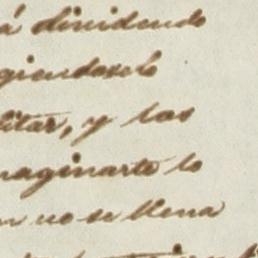 á dividendo
giendoselo
litar, y las
maginarte lo
n no se llena